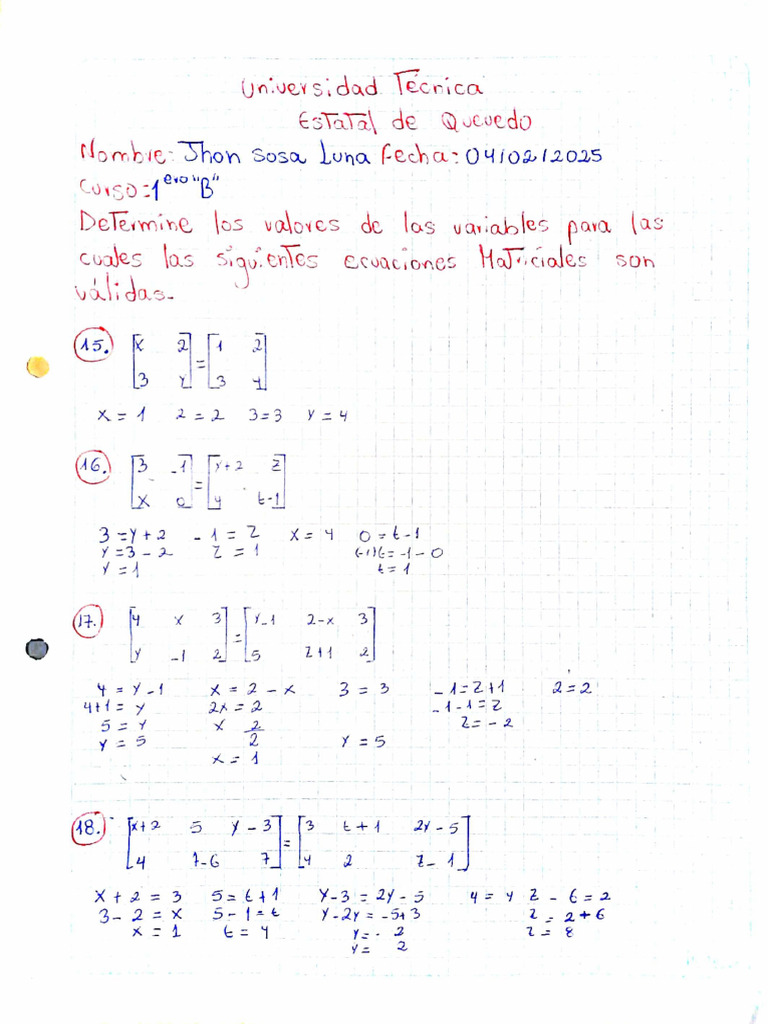 Universidad Técnica
Estatal de Quevedo
Nombre: Jhon Sosa Luna Fecha: 04/02/2025
Curso: 1ero "B"
Determine los valores de las variables para las
cuales las siguientes ecuaciones Matriciales son
válidas.
15. [x 2] = [1 2]
[3 y] [3 4]
x = 1 2 = 2 3 = 3 y = 4
16. [3 -1] = [y+2 z]
[x 0] [4 t-1]
3 = y + 2 - 1 = z x = 4 0 = t - 1
y = 3 - 2 z = 1 (-1)t = -1 - 0
y = 1 t = 1
17. [4 x 3] = [y-1 2-x 3]
[y -1 2] [5 z+1 2]
4 = y - 1 x = 2 - x 3 = 3 - 1 = z + 1 2 = 2
4+1 = y 2x = 2 - 1 - 1 = z
5 = y x 2/2 z = - 2
y = 5 y = 5
x = 1
18. [x+2 5 y-3] = [3 t+1 2y-5]
[4 z-6 7] [4 2 z-1]
x + 2 = 3 5 = t + 1 y - 3 = 2y - 5 4 = 4 z - 6 = 2
3 - 2 = x 5 - 1 = t y - 2y = -5 + 3 z = 2 + 6
x = 1 t = 4 y = - 2 z = 8
y = 2